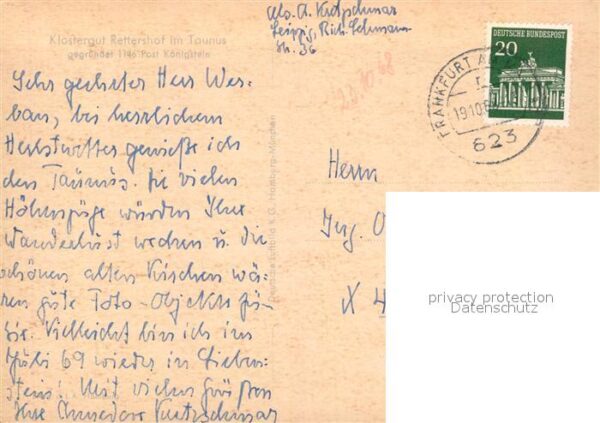 Klostergut Rettershof im Taunus
gegründet 1146 Post Königstein
Abs. A. Kretzschmar
Leipzig, Rich. Lehmann
Str. 36
23.10.68
DEUTSCHE BUNDESPOST
20
FRANKFURT A
19.10.6
623
Sehr geehrter Herr Wer-
ban, bei herrlichem
Herbstwetter genieße ich
den Taunus. Die vielen
Höhenzüge würden Ihre
Wanderlust wecken u. die
schönen alten Kirchen wä-
ren gute Foto-Objekte für
Sie. Vielleicht bin ich im
Juli 69 wieder in Lieben-
stein! Mit vielen Grüßen
Ihre Annedore Kretzschmar
Herrn
Ing. O
X 4
privacy protection
Datenschutz